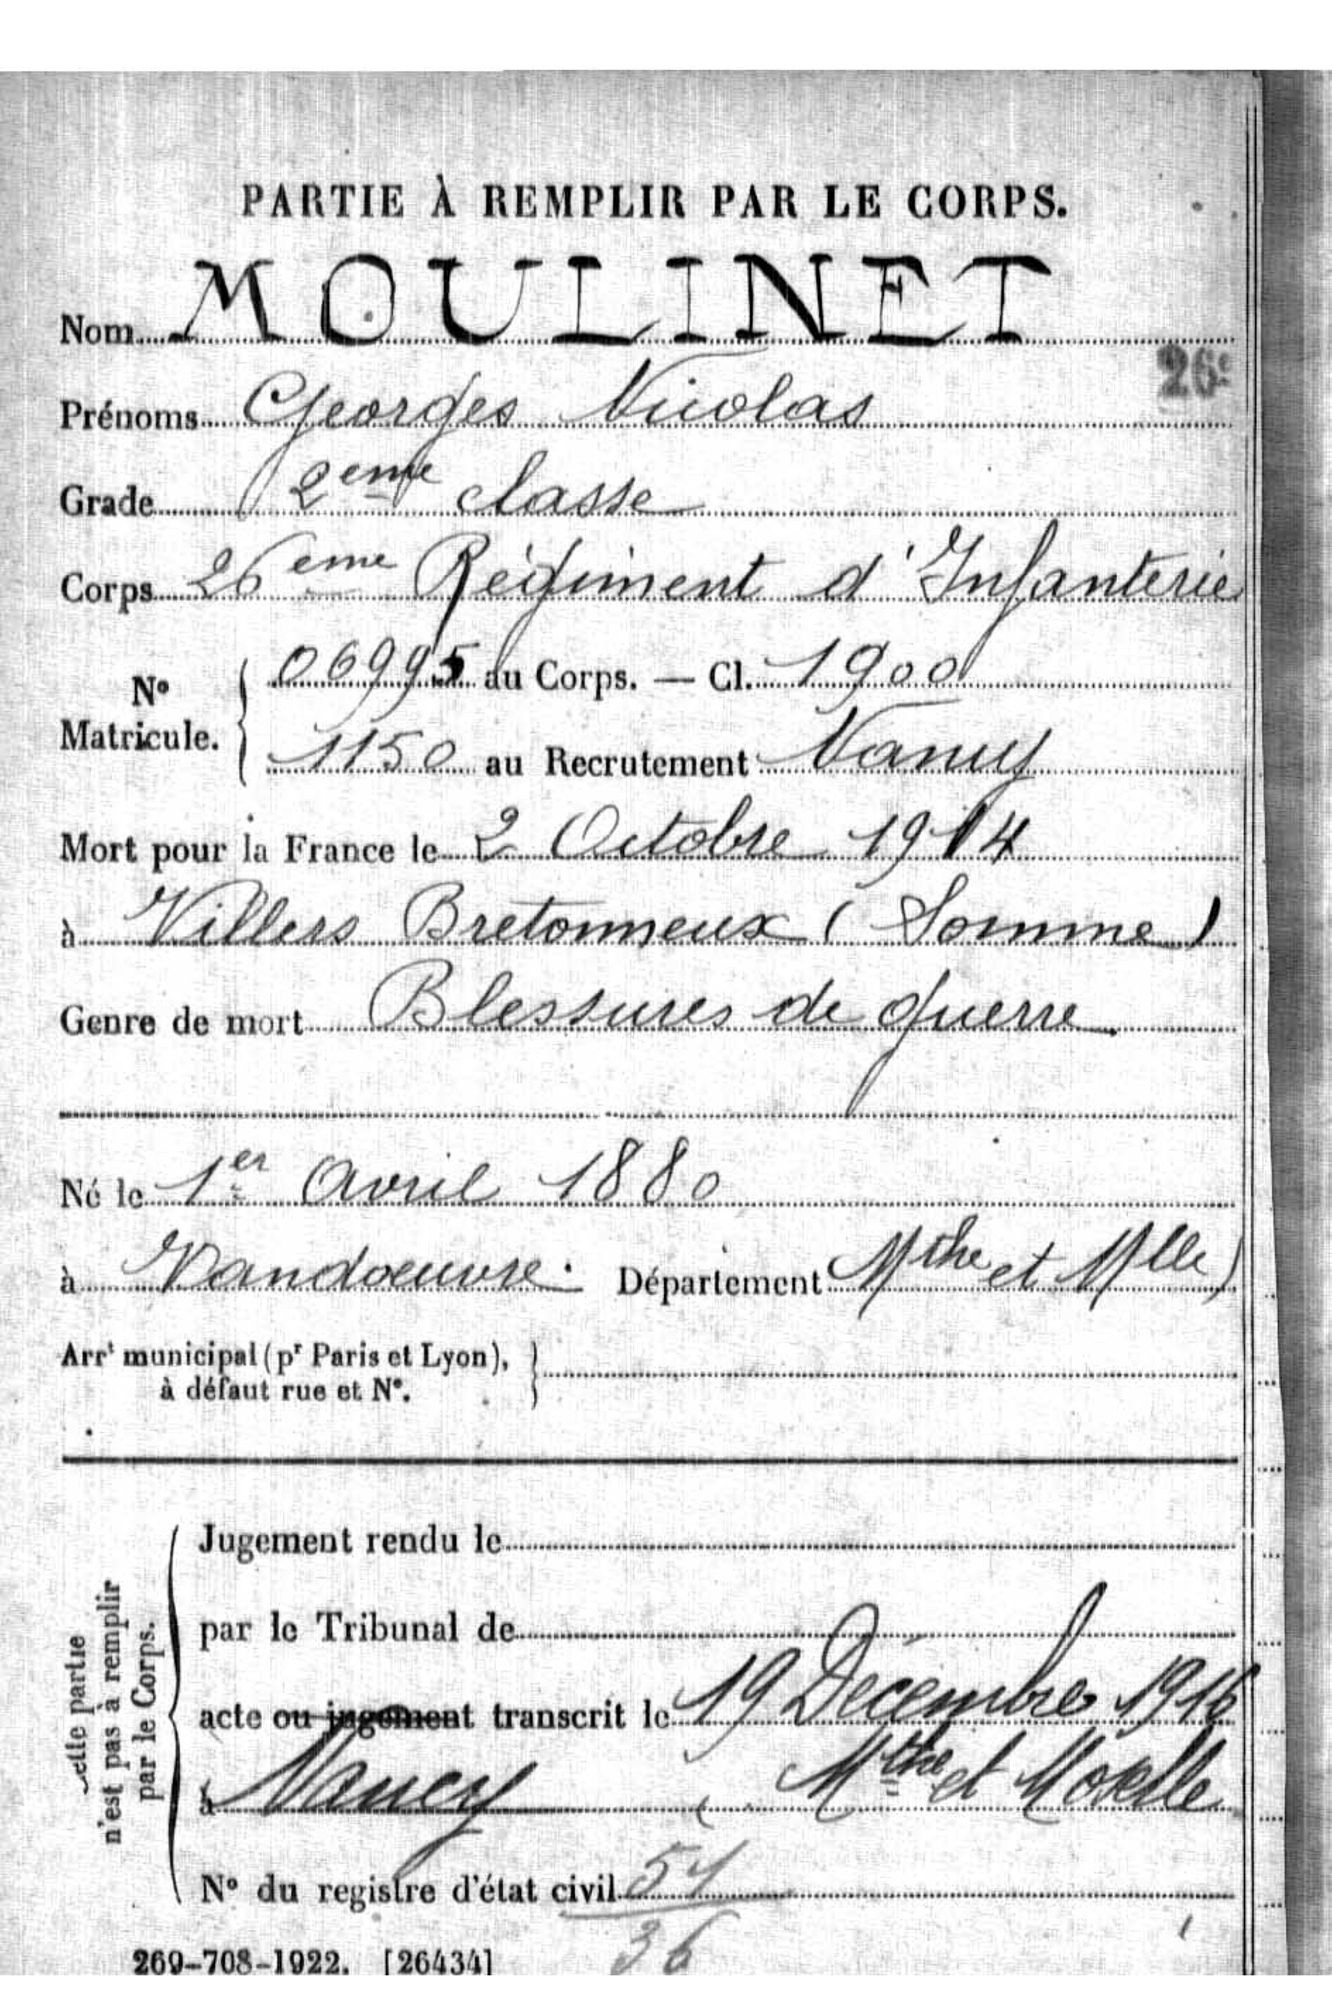 PARTIE À REMPLIR PAR LE CORPS.
Nom MOULINET
26e
Prénoms Georges Nicolas
Grade 2eme classe
Corps 26eme Régiment d'Infanterie
N° Matricule. { 06995 au Corps. — Cl. 1900
1150 au Recrutement Nancy
Mort pour la France le 2 Octobre 1914
à Villers Bretonneux (Somme)
Genre de mort Blessures de guerre
Né le 1er Avril 1880
à Vandoeuvre. Département Mthe et Mlle)
Arrt municipal (pr Paris et Lyon), }
à défaut rue et N°.
Cette partie
n'est pas à remplir
par le Corps.
Jugement rendu le
par le Tribunal de
acte ou jugement transcrit le 19 Décembre 1916
à Nancy ( Mthe et Moselle
N° du registre d'état civil 51
36
269-708-1922. [26434]